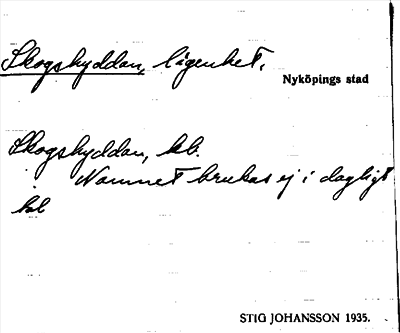 Skogshyddan, lägenhet.
Nyköpings stad
Skogshyddan, kb.
Namnet brukas ej i dagligt
tal
STIG JOHANSSON 1935.